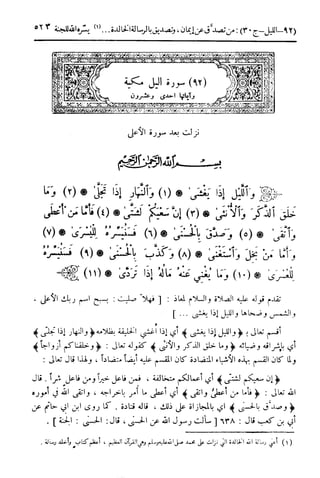 (٩٢-الليل-ج٣٠): من تصدَّق عن إيمان، وتصديق بالرسالة الخالدة...(١) يسَّره الله للجنة ٥٢٣
(٩٢) سورة الليل مكية
وآياتها احدى وعشرون
نزلت بعد سورة الأعلى
بِسْمِ اللهِ الرَّحْمٰنِ الرَّحِيمِ
﴿ وَاللَّيْلِ إِذَا يَغْشَى ﴾ (١) وَالنَّهَارِ إِذَا تَجَلَّى ﴾ (٢) وَمَا
خَلَقَ الذَّكَرَ وَالْأُنْثَى ﴾ (٣) إِنَّ سَعْيَكُمْ لَشَتَّى ﴾ (٤) فَأَمَّا مَنْ أَعْطَى
وَاتَّقَى ﴾ (٥) وَصَدَّقَ بِالْحُسْنَى ﴾ (٦) فَسَنُيَسِّرُهُ لِلْيُسْرَى ﴾ (٧)
وَأَمَّا مَنْ بَخِلَ وَاسْتَغْنَى ﴾ (٨) وَكَذَّبَ بِالْحُسْنَى ﴾ (٩) فَسَنُيَسِّرُهُ
لِلْعُسْرَى ﴾ (١٠) وَمَا يُغْنِي عَنْهُ مَالُهُ إِذَا تَرَدَّى ﴾ (١١)
تقدم قوله عليه الصلاة والسلام لمعاذ : [ فهلاّ صليت : بسبح اسم ربك الأعلى ،
والشمس وضحاها والليل إذا يغشى ... ]
أقسم تعالى بـ ﴿ والليل إذا يغشى ﴾ أي إذا أغشى الخليقة بظلامه ﴿ والنهار إذا تجلى ﴾
أي بإشراقه وضيائه ﴿ وما خلق الذكر والأنثى ﴾ كقوله تعالى : ﴿ وخلقناكم أزواجاً ﴾
ولما كان القسم بهذه الأشياء المتضادة كان المقسم عليه أيضاً متضاداً ، ولهذا قال تعالى :
﴿ إن سعيكم لشتى ﴾ أي أعمالكم متخالفة ، فمن فاعل خيراً ومن فاعل شراً . قال
الله تعالى : ﴿ فأما من أعطى واتقى ﴾ أي أعطى ما أمر بإخراجه ، واتقى الله في أموره
﴿ وصدَّق بالحسنى ﴾ أي بالمجازاة على ذلك ، قاله قتادة . كما روى ابن ابي حاتم عن
أبي بن كعب قال : ٦٣٨ [ سألت رسول الله عن الحسنى ، قال : الحسنى : الجنة ] .
(١) أعني رسالة الله الخالدة التي نزلت على محمد صلى الله عليه وسلم وهي القرآن العظيم ،